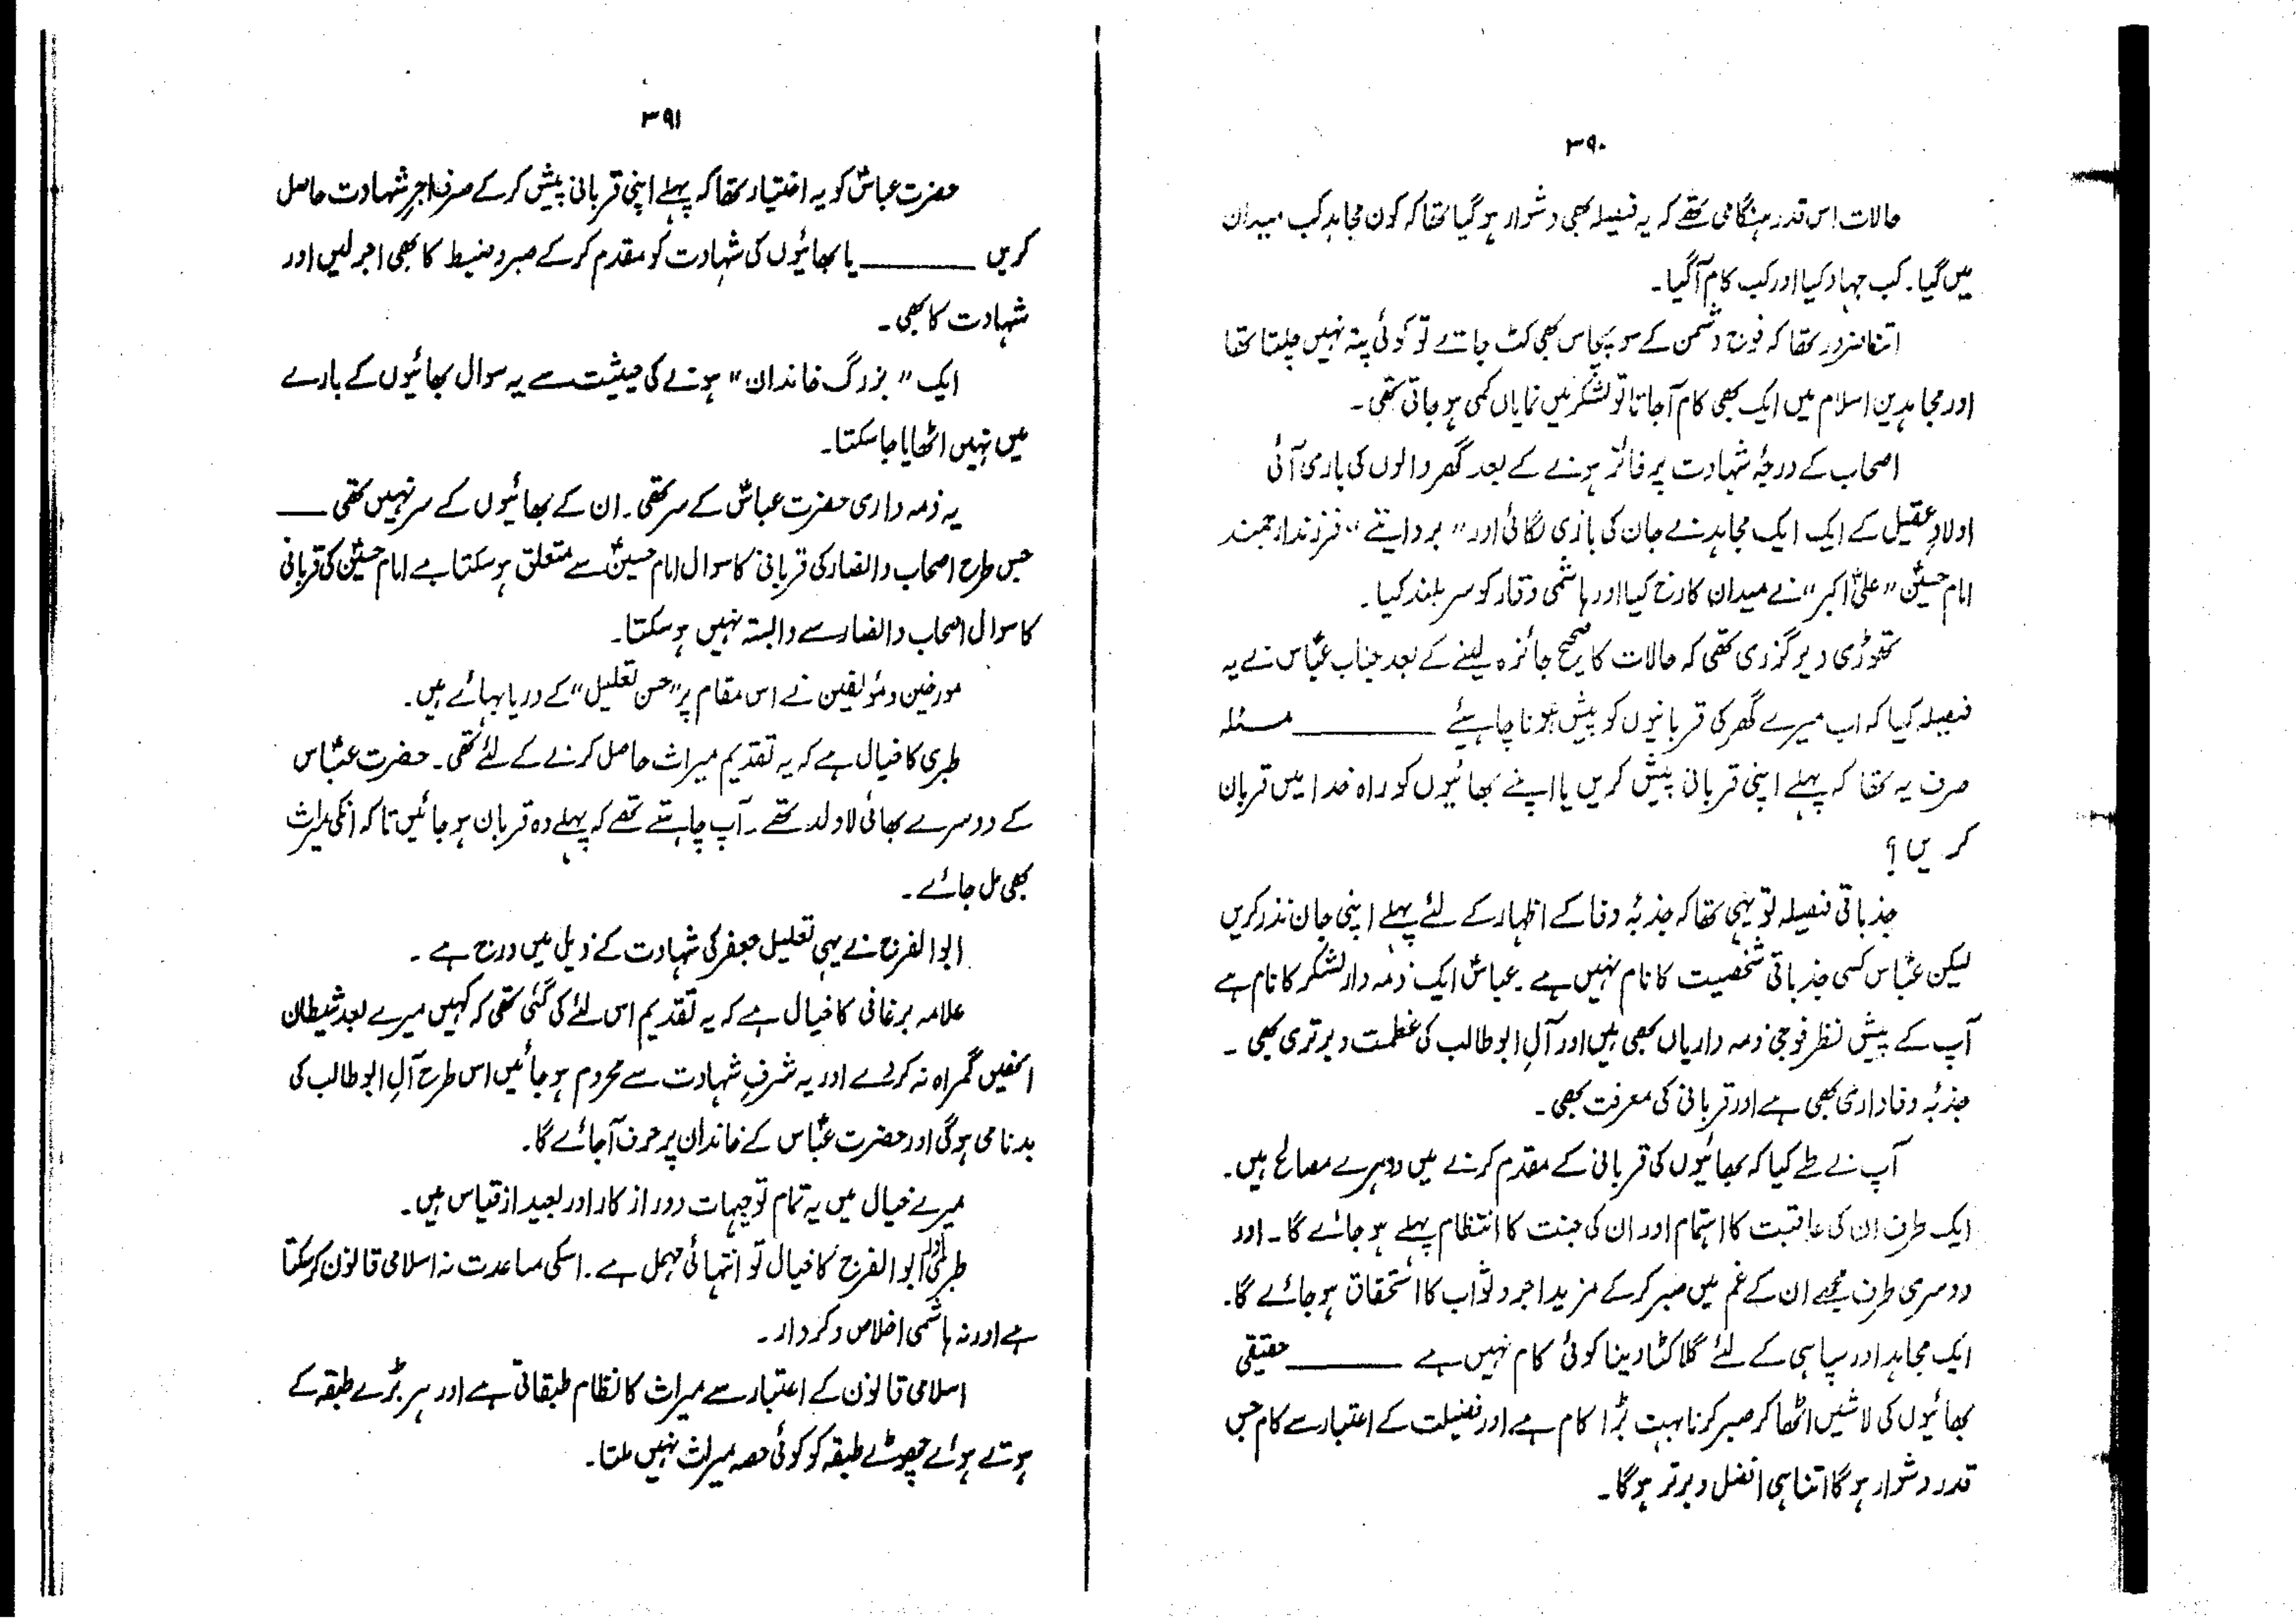 ۳۹۰
حالات اس قدر ہنگامی تھے کہ یہ فیصلہ بھی دشوار ہو گیا تھا کہ کون مجاہد کب میدان
میں گیا۔ کب جہاد کیا اور کب کام آ گیا۔
اتنا ضرور تھا کہ فوج دشمن کے سو پچاس بھی کٹ جاتے تو کوئی پتہ نہیں چلتا تھا
اور مجاہدین اسلام میں ایک بھی کام آ جاتا تو لشکر میں نمایاں کمی ہو جاتی تھی۔
اصحاب کے درجۂ شہادت پر فائز ہونے کے بعد گھر والوں کی باری آئی
اولادِ عقیل کے ایک ایک مجاہد نے جان کی بازی لگائی اور "بروایتے" فرزند ارجمند
امام حسینؑ "علی اکبرؑ" نے میدان کا رخ کیا اور ہاشمی وقار کو سر بلند کیا۔
تھوڑی دیر گزری تھی کہ حالات کا صحیح جائزہ لینے کے بعد جناب عباسؑ نے یہ
فیصلہ کیا کہ اب میرے گھر کی قربانیوں کو پیش ہونا چاہیئے ــــــــــ مسئلہ
صرف یہ تھا کہ پہلے اپنی قربانی پیش کریں یا اپنے بھائیوں کو راہ خدا میں قربان
کریں؟
جذباتی فیصلہ تو یہی تھا کہ جذبۂ وفا کے اظہار کے لئے پہلے اپنی جان نذر کریں
لیکن عباسؑ کسی جذباتی شخصیت کا نام نہیں ہے۔ عباسؑ ایک ذمہ دار لشکر کا نام ہے
آپ کے پیش نظر فوجی ذمہ داریاں بھی ہیں اور آلِ ابوطالب کی عظمت و برتری بھی۔
جذبۂ وفاداری بھی ہے اور قربانی کی معرفت بھی۔
آپ نے طے کیا کہ بھائیوں کی قربانی کے مقدم کرنے میں دوہرے مصالح ہیں۔
ایک طرف ان کی عاقبت کا اہتمام اور ان کی جنت کا انتظام پہلے ہو جائے گا۔ اور
دوسری طرف مجھے ان کے غم میں صبر کر کے مزید اجر و ثواب کا استحقاق ہو جائے گا۔
ایک مجاہد اور سپاہی کے لئے گلا کٹا دینا کوئی کام نہیں ہے ــــــــــ حقیقی
بھائیوں کی لاشیں اٹھا کر صبر کرنا بہت بڑا کام ہے اور فضیلت کے اعتبار سے کام جس
قدر دشوار ہو گا اتنا ہی افضل و برتر ہو گا۔
۳۹۱
حضرت عباسؑ کو یہ اختیار تھا کہ پہلے اپنی قربانی پیش کر کے صرف اجرِ شہادت حاصل
کریں ــــــــــ یا بھائیوں کی شہادت کو مقدم کر کے صبر و ضبط کا بھی اجر لیں اور
شہادت کا بھی۔
ایک "بزرگ خاندان" ہونے کی حیثیت سے یہ سوال بھائیوں کے بارے
میں نہیں اٹھایا جا سکتا۔
یہ ذمہ داری حضرت عباسؑ کے سر تھی۔ ان کے بھائیوں کے سر نہیں تھی ــــــ
جس طرح اصحاب و انصار کی قربانی کا سوال امام حسینؑ سے متعلق ہو سکتا ہے امام حسینؑ کی قربانی
کا سوال اصحاب و انصار سے وابستہ نہیں ہو سکتا۔
مورخین و مؤلفین نے اس مقام پر "حسن تعلیل" کے دریا بہائے ہیں۔
طبری کا خیال ہے کہ یہ تقدیم میراث حاصل کرنے کے لئے تھی۔ حضرت عباسؑ
کے دوسرے بھائی لا ولد تھے۔ آپ چاہتے تھے کہ پہلے وہ قربان ہو جائیں تاکہ انکی میراث
بھی مل جائے۔
ابوالفرج نے یہی تعلیل جعفر کی شہادت کے ذیل میں درج ہے۔
علامہ برغانی کا خیال ہے کہ یہ تقدیم اس لئے کی گئی تھی کہ کہیں میرے بعد شیطان
انھیں گمراہ نہ کر دے اور یہ شرفِ شہادت سے محروم ہو جائیں اس طرح آلِ ابوطالب کی
بدنامی ہو گی اور حضرت عباسؑ کے خاندان پر حرف آ جائے گا۔
میرے خیال میں یہ تمام توجیہات دور از کار اور بعید از قیاس ہیں۔
طبری اور ابوالفرج کا خیال تو انتہائی مہمل ہے۔ اسکی مساعدت نہ اسلامی قانون کر سکتا
ہے اور نہ ہاشمی اخلاص و کردار۔
اسلامی قانون کے اعتبار سے میراث کا نظام طبقاتی ہے اور ہر بڑے طبقہ کے
ہوتے ہوئے چھوٹے طبقہ کو کوئی حصہ میراث نہیں ملتا۔